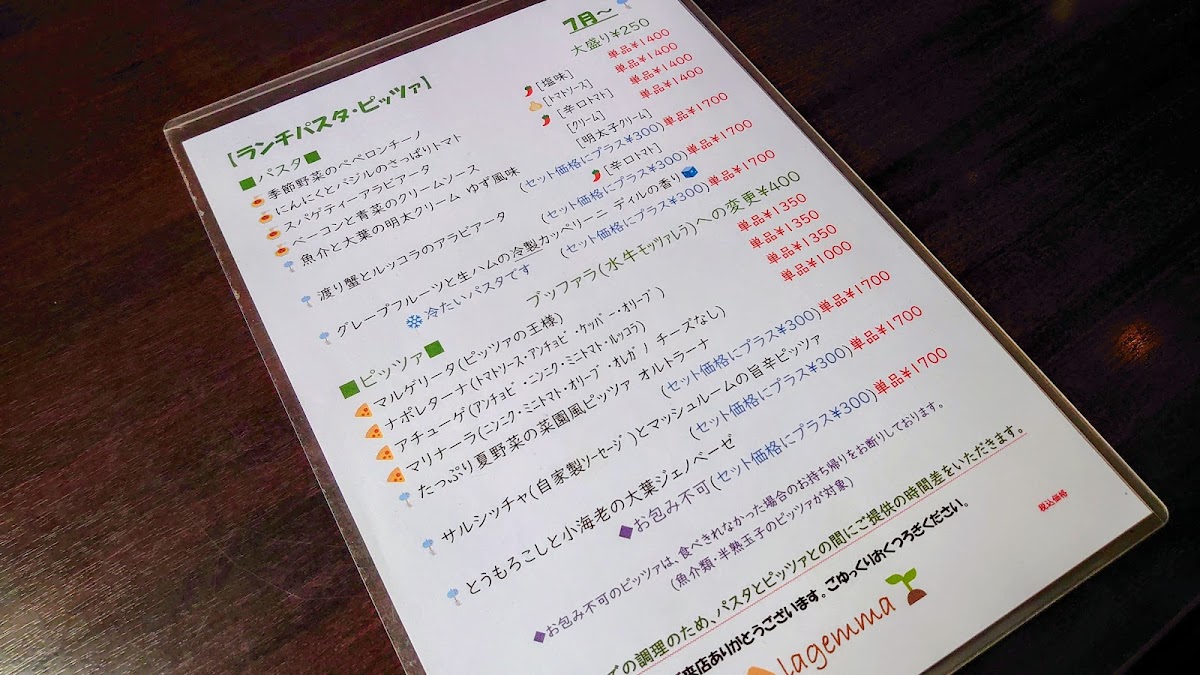 7月~
[ランチパスタ・ピッツァ]
大盛り¥250
■パスタ■
季節野菜のペペロンチーノ [塩味] 単品¥1400
にんにくとバジルのさっぱりトマト [トマトソース] 単品¥1400
スパゲティーアラビアータ [辛口トマト] 単品¥1400
ベーコンと青菜のクリームソース [クリーム] 単品¥1400
魚介と大葉の明太クリーム ゆず風味 [明太子クリーム]
(セット価格にプラス¥300) 単品¥1700
渡り蟹とルッコラのアラビアータ [辛口トマト]
(セット価格にプラス¥300) 単品¥1700
グレープフルーツと生ハムの冷製カッペリーニ ディルの香り
冷たいパスタです (セット価格にプラス¥300) 単品¥1700
ブッファラ(水牛モッツァレラ)への変更¥400
■ピッツァ■
マルゲリータ(ピッツァの王様) 単品¥1350
ナポレターナ(トマトソース・アンチョビ・ケッパー・オリーブ) 単品¥1350
アチューゲ(アンチョビ・ニンニク・ミニトマト・ルッコラ) 単品¥1350
マリナーラ(ニンニク・ミニトマト・オリーブ・オレガノ チーズなし) 単品¥1000
たっぷり夏野菜の菜園風ピッツァ オルトラーナ
(セット価格にプラス¥300) 単品¥1700
サルシッチャ(自家製ソーセージ)とマッシュルームの旨辛ピッツァ
(セット価格にプラス¥300) 単品¥1700
とうもろこしと小海老の大葉ジェノベーゼ
◆お包み不可(セット価格にプラス¥300) 単品¥1700
◆お包み不可のピッツァは、食べきれなかった場合のお持ち帰りをお断りしております。
(魚介類・半熟玉子のピッツァが対象)
の調理のため、パスタとピッツァとの間にご提供の時間差をいただきます。
税込価格
来店ありがとうございます。ごゆっくりおくつろぎください。
lagemma